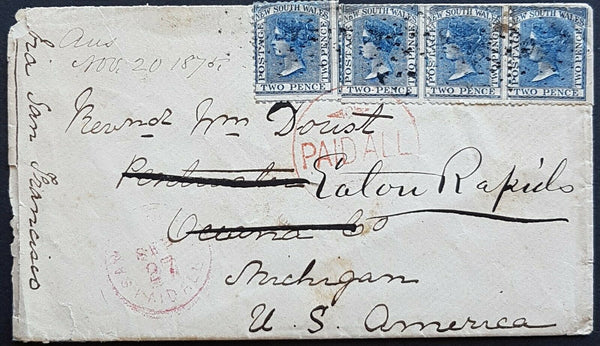 Aus
Nov. 20 1875.
Via San Francisco
NEW SOUTH WALES POSTAGE TWO PENCE
NEW SOUTH WALES POSTAGE TWO PENCE
NEW SOUTH WALES POSTAGE TWO PENCE
NEW SOUTH WALES POSTAGE TWO PENCE
PAID ALL
Revnd Wm Doust
Pentwater Eaton Rapids
Oceana Co
Michigan
U. S. America
PAID ALL